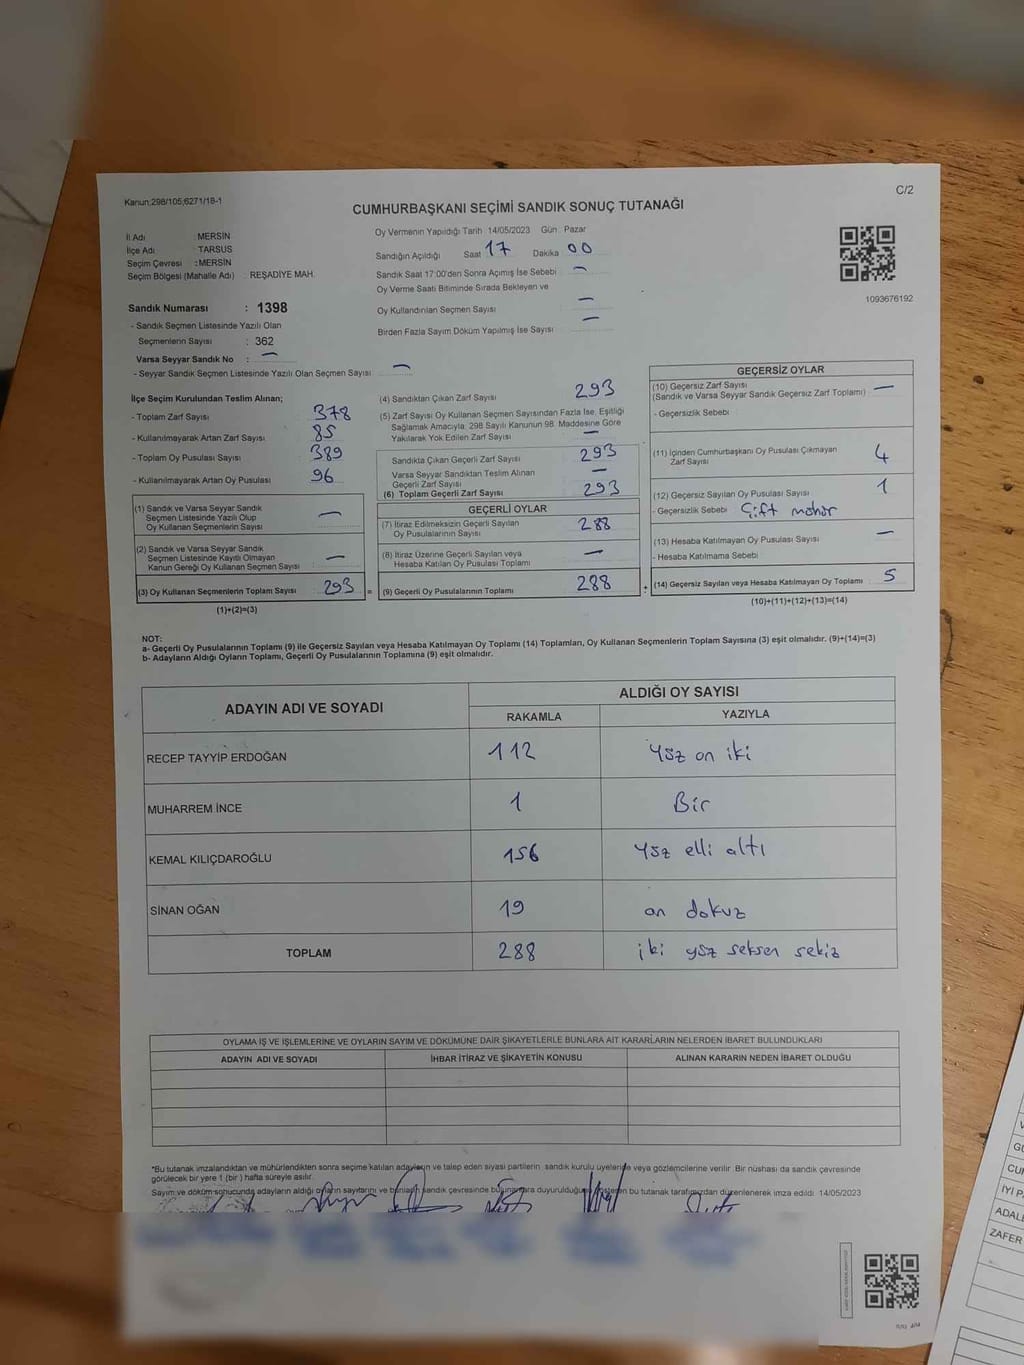 Kanun;298/105;6271/18-1
C/2
CUMHURBAŞKANI SEÇİMİ SANDIK SONUÇ TUTANAĞI
İl Adı : MERSİN
İlçe Adı : TARSUS
Seçim Çevresi : MERSİN
Seçim Bölgesi (Mahalle Adı) : REŞADİYE MAH.
Oy Vermenin Yapıldığı Tarih 14/05/2023 Gün : Pazar
Sandığın Açıldığı Saat 17 Dakika 00
Sandık Saat 17:00'den Sonra Açımış İse Sebebi –
Oy Verme Saati Bitiminde Sırada Bekleyen ve
Oy Kullandırılan Seçmen Sayısı –
Birden Fazla Sayım Döküm Yapılmış İse Sayısı –
1093676192
Sandık Numarası : 1398
- Sandık Seçmen Listesinde Yazılı Olan
Seçmenlerin Sayısı : 362
Varsa Seyyar Sandık No : –
- Seyyar Sandık Seçmen Listesinde Yazılı Olan Seçmen Sayısı : –
İlçe Seçim Kurulundan Teslim Alınan;
- Toplam Zarf Sayısı 378
- Kullanılmayarak Artan Zarf Sayısı 85
- Toplam Oy Pusulası Sayısı 389
- Kullanılmayarak Artan Oy Pusulası 96
(1) Sandık ve Varsa Seyyar Sandık
Seçmen Listesinde Yazılı Olup
Oy Kullanan Seçmenlerin Sayısı –
(2) Sandık ve Varsa Seyyar Sandık
Seçmen Listesinde Kayıtlı Olmayan
Kanun Gereği Oy Kullanan Seçmen Sayısı –
(3) Oy Kullanan Seçmenlerin Toplam Sayısı 293 =
(1)+(2)=(3)
(4) Sandıktan Çıkan Zarf Sayısı 293
(5) Zarf Sayısı Oy Kullanan Seçmen Sayısından Fazla İse, Eşitliği
Sağlamak Amacıyla, 298 Sayılı Kanunun 98. Maddesine Göre
Yakılarak Yok Edilen Zarf Sayısı –
Sandıkta Çıkan Geçerli Zarf Sayısı 293
Varsa Seyyar Sandıktan Teslim Alınan
Geçerli Zarf Sayısı –
(6) Toplam Geçerli Zarf Sayısı 293
GEÇERLİ OYLAR
(7) İtiraz Edilmeksizin Geçerli Sayılan
Oy Pusulalarının Sayısı 288
(8) İtiraz Üzerine Geçerli Sayılan veya
Hesaba Katılan Oy Pusulası Toplamı –
(9) Geçerli Oy Pusulalarının Toplamı 288 +
GEÇERSİZ OYLAR
(10) Geçersiz Zarf Sayısı –
(Sandık ve Varsa Seyyar Sandık Geçersiz Zarf Toplamı)
- Geçersizlik Sebebi
(11) İçinden Cumhurbaşkanı Oy Pusulası Çıkmayan
Zarf Sayısı 4
(12) Geçersiz Sayılan Oy Pusulası Sayısı 1
- Geçersizlik Sebebi Çift mühür
(13) Hesaba Katılmayan Oy Pusulası Sayısı –
- Hesaba Katılmama Sebebi
(14) Geçersiz Sayılan veya Hesaba Katılmayan Oy Toplamı 5
(10)+(11)+(12)+(13)=(14)
NOT:
a- Geçerli Oy Pusulalarının Toplamı (9) ile Geçersiz Sayılan veya Hesaba Katılmayan Oy Toplamı (14) Toplamları, Oy Kullanan Seçmenlerin Toplam Sayısına (3) eşit olmalıdır. (9)+(14)=(3)
b- Adayların Aldığı Oyların Toplamı, Geçerli Oy Pusulalarının Toplamına (9) eşit olmalıdır.
ADAYIN ADI VE SOYADI ALDIĞI OY SAYISI
RAKAMLA YAZIYLA
RECEP TAYYİP ERDOĞAN 112 Yüz on iki
MUHARREM İNCE 1 Bir
KEMAL KILIÇDAROĞLU 156 Yüz elli altı
SİNAN OĞAN 19 on dokuz
TOPLAM 288 iki yüz seksen sekiz
OYLAMA İŞ VE İŞLEMLERİNE VE OYLARIN SAYIM VE DÖKÜMÜNE DAİR ŞİKAYETLERLE BUNLARA AİT KARARLARIN NELERDEN İBARET BULUNDUKLARI
ADAYIN ADI VE SOYADI İHBAR İTİRAZ VE ŞİKAYETİN KONUSU ALINAN KARARIN NEDEN İBARET OLDUĞU
*Bu tutanak imzalandıktan ve mühürlendikten sonra seçime katılan adayların ve talep eden siyasi partilerin sandık kurulu üyelerine veya gözlemcilerine verilir. Bir nüshası da sandık çevresinde
görülecek bir yere 1 (bir) hafta süreyle asılır.
Sayım ve döküm sonucunda adayların aldığı oyların sayılarını ve bunların sandık çevresinde bulunanlara duyurulduğunu gösteren bu tutanak tarafımızdan düzenlenerek imza edildi. 14/05/2023
İYİ P
ADAL
ZAFER